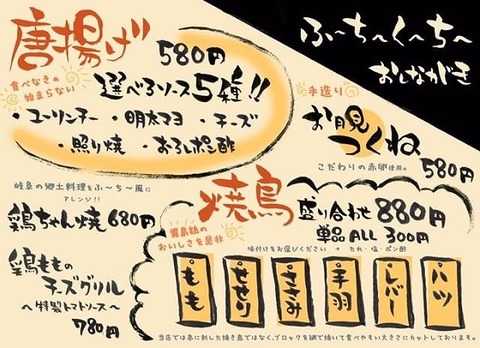 ふ〜ち〜く〜ち〜
おしながき
唐揚げ 580円
食べなきゃ
始まらない
選べるソース5種!!
・ユーリンチー ・明太マヨ ・チーズ
・照り焼 ・おろしポン酢
手造り
お月見つくね
こだわりの赤卵使用。
580円
岐阜の郷土料理をふ〜ち〜風に
アレンジ!!
鶏ちゃん焼 680円
鶏ももの
チーズグリル
〜特製トマトソース〜
780円
焼鳥
盛り合わせ 880円
単品 ALL 300円
のおいしさを是非
味付けをお選びください → たれ・塩・ポン酢
もも
せせり
ささみ
手羽
レバー
ハツ
当店では串に刺した焼き鳥ではなく、ブロックを網で焼いて食べやすい大きさにカットしております。